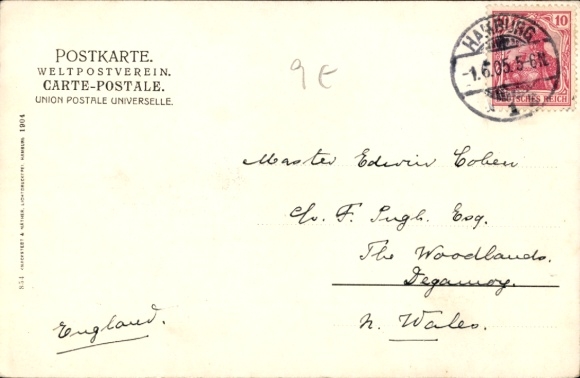 POSTKARTE.
WELTPOSTVEREIN.
CARTE-POSTALE.
UNION POSTALE UNIVERSELLE.
9 E
HAMBURG
-1.6.05.5-6N.
1
10
DEUTSCHES REICH
Master Edwin Cohen
c/o. F. Pugh. Esq.
The Woodlands.
Deganwy.
N. Wales.
England.
854 KNACKSTEDT & NÄTHER, LICHTDRUCKEREI, HAMBURG 1904